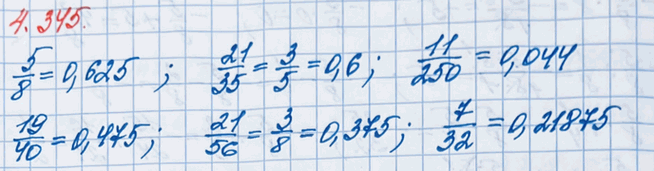 4.345.
5/8 = 0,625 ; 21/35 = 3/5 = 0,6 ; 11/250 = 0,044
19/40 = 0,475 ; 21/56 = 3/8 = 0,375 ; 7/32 = 0,21875